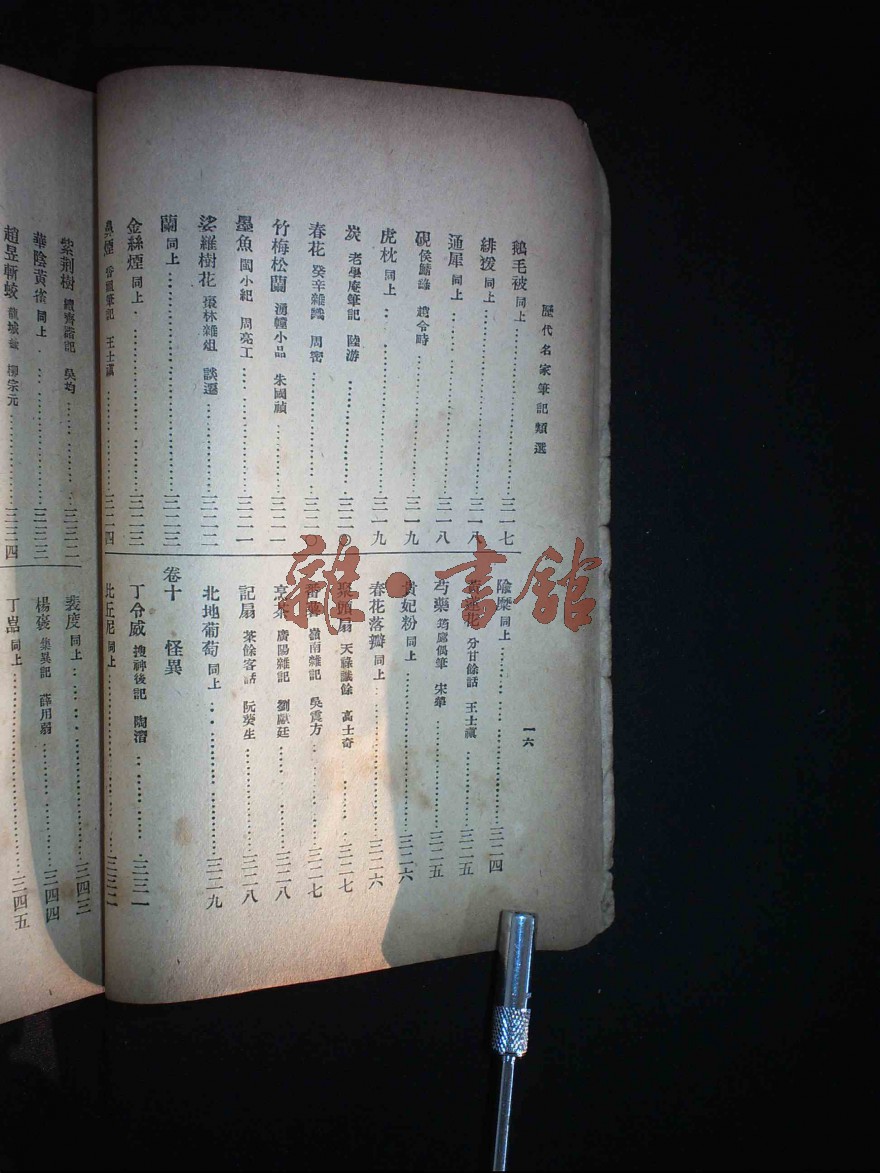 歷代名家筆記類選
一六
鵝毛被 同上 三一七
緋猨 同上 三一八
通犀 同上 三一八
硯 侯鯖錄 趙令畤 三一九
虎枕 同上 三一九
炭 老學庵筆記 陸游 三二〇
春花 癸辛雜識 周密 三二〇
竹梅松蘭 湧幢小品 朱國禎 三二一
墨魚 閩小紀 周亮工 三二一
娑羅樹花 棗林雜俎 談遷 三二二
蘭 同上 三二三
金絲煙 同上 三二三
煙 香祖筆記 王士禛 三二四
隃糜 同上 三二四
分甘餘話 王士禛 三二五
芍藥 筠廊偶筆 宋犖 三二五
貴妃粉 同上 三二六
春花落瓣 同上 三二六
聚頭扇 天祿識餘 高士奇 三二七
蕃薯 嶺南雜記 吳震方 三二七
烹茶 廣陽雜記 劉獻廷 三二八
記扇 茶餘客話 阮葵生 三二八
北地葡萄 同上 三二九
卷十 怪異
丁令威 搜神後記 陶潛 三三一
比丘尼 同上 三三二
紫荊樹 續齊諧記 吳均 三三三
華陰黃雀 同上 三三三
趙昱斬蛟 龍城錄 柳宗元 三三四
裴度 同上 三四三
楊褒 集異記 薛用弱 三四四
丁嵓 同上 三四五
雜·書館